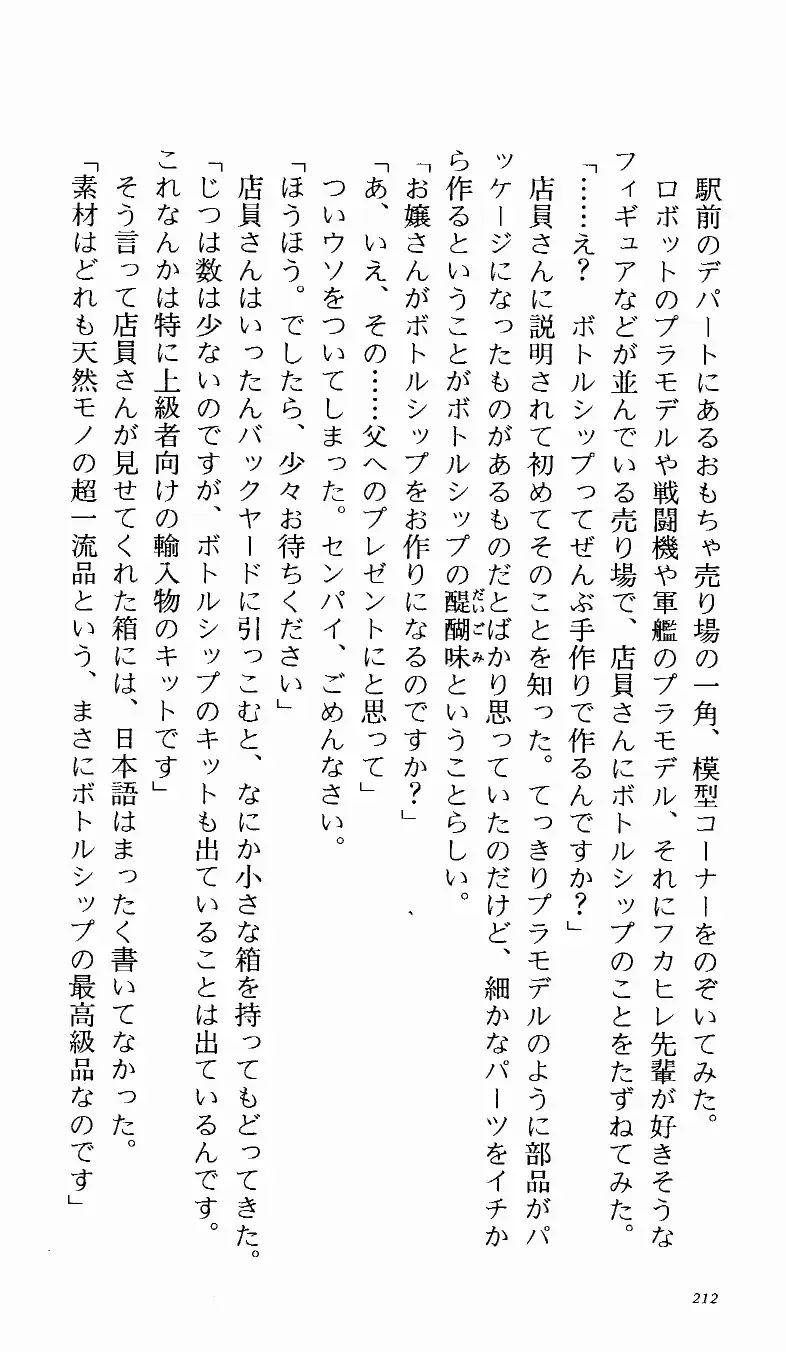 駅前のデパートにあるおもちゃ売り場の一角、模型コーナーをのぞいてみた。
　ロボットのプラモデルや戦闘機や軍艦のプラモデル、それにフカヒレ先輩が好きそうな
フィギュアなどが並んでいる売り場で、店員さんにボトルシップのことをたずねてみた。
「……え？　ボトルシップってぜんぶ手作りで作るんですか？」
　店員さんに説明されて初めてそのことを知った。てっきりプラモデルのように部品がパ
ッケージになったものがあるものだとばかり思っていたのだけど、細かなパーツをイチか
ら作るということがボトルシップの醍醐味ということらしい。
だいごみ
「お嬢さんがボトルシップをお作りになるのですか？」
「あ、いえ、その……父へのプレゼントにと思って」
　ついウソをついてしまった。センパイ、ごめんなさい。
「ほうほう。でしたら、少々お待ちください」
　店員さんはいったんバックヤードに引っこむと、なにか小さな箱を持ってもどってきた。
「じつは数は少ないのですが、ボトルシップのキットも出ていることは出ているんです。
これなんかは特に上級者向けの輸入物のキットです」
　そう言って店員さんが見せてくれた箱には、日本語はまったく書いてなかった。
「素材はどれも天然モノの超一流品という、まさにボトルシップの最高級品なのです」
212